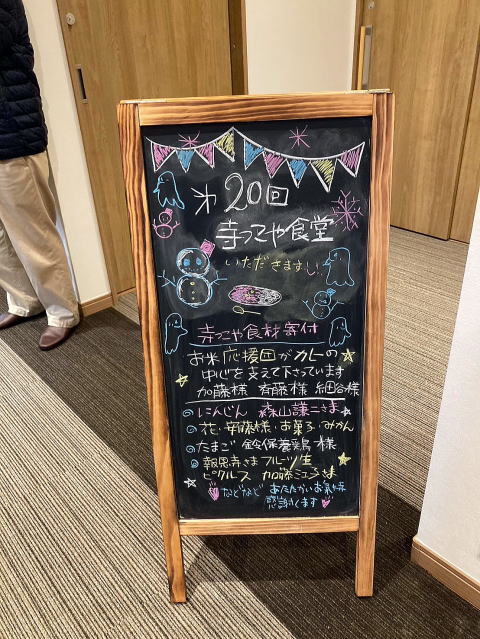 㐧20回
寺っこや食堂
いただきますい
寺っこや食材寄付
お米応援団がカレーの
中心を支えて下さっています
加藤様 斉藤様 細谷様
にんじん 森山謙二さま
花・安藤様・お菓子・みかん
たまご 鈴保養鶏 様
報恩寺さま フルーツ生
ピクルス 加藤ミヨ子さま
などなど あたたかいお気持
感謝します